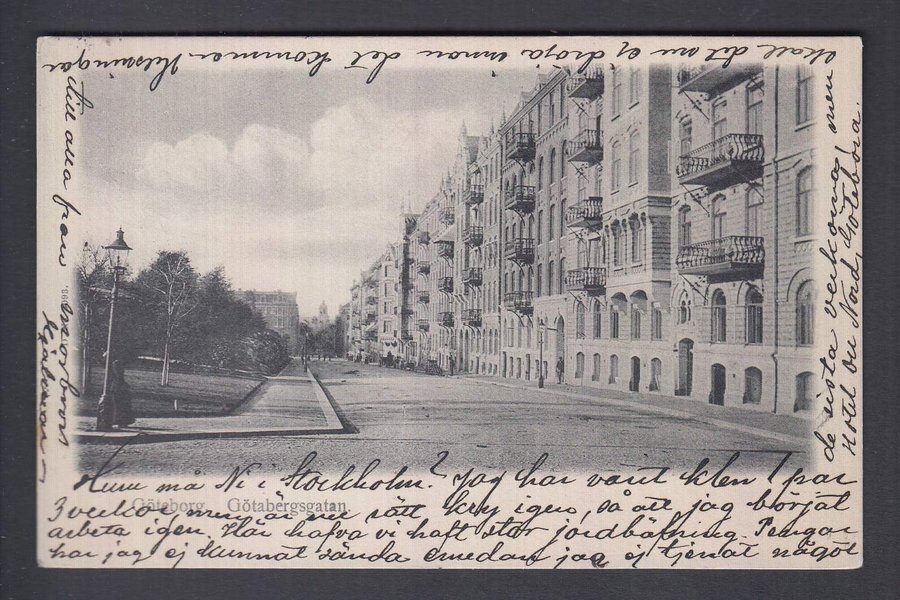 Huru må Ni i Stockholm? Jag har varit klen 1 par
Göteborg. Götabergsgatan.
3 veckor men är nu rätt kry igen, så att jag börjat
arbeta igen. Här hafva vi haft stor jordbäfning. Pengar
har jag ej kunnat sända emedan jag ej tjenat något
de sista veckorna men
skall det nu ej dröja innan det kommer. Helsningar
till alla från
Hotel du Nord, Göteborg.